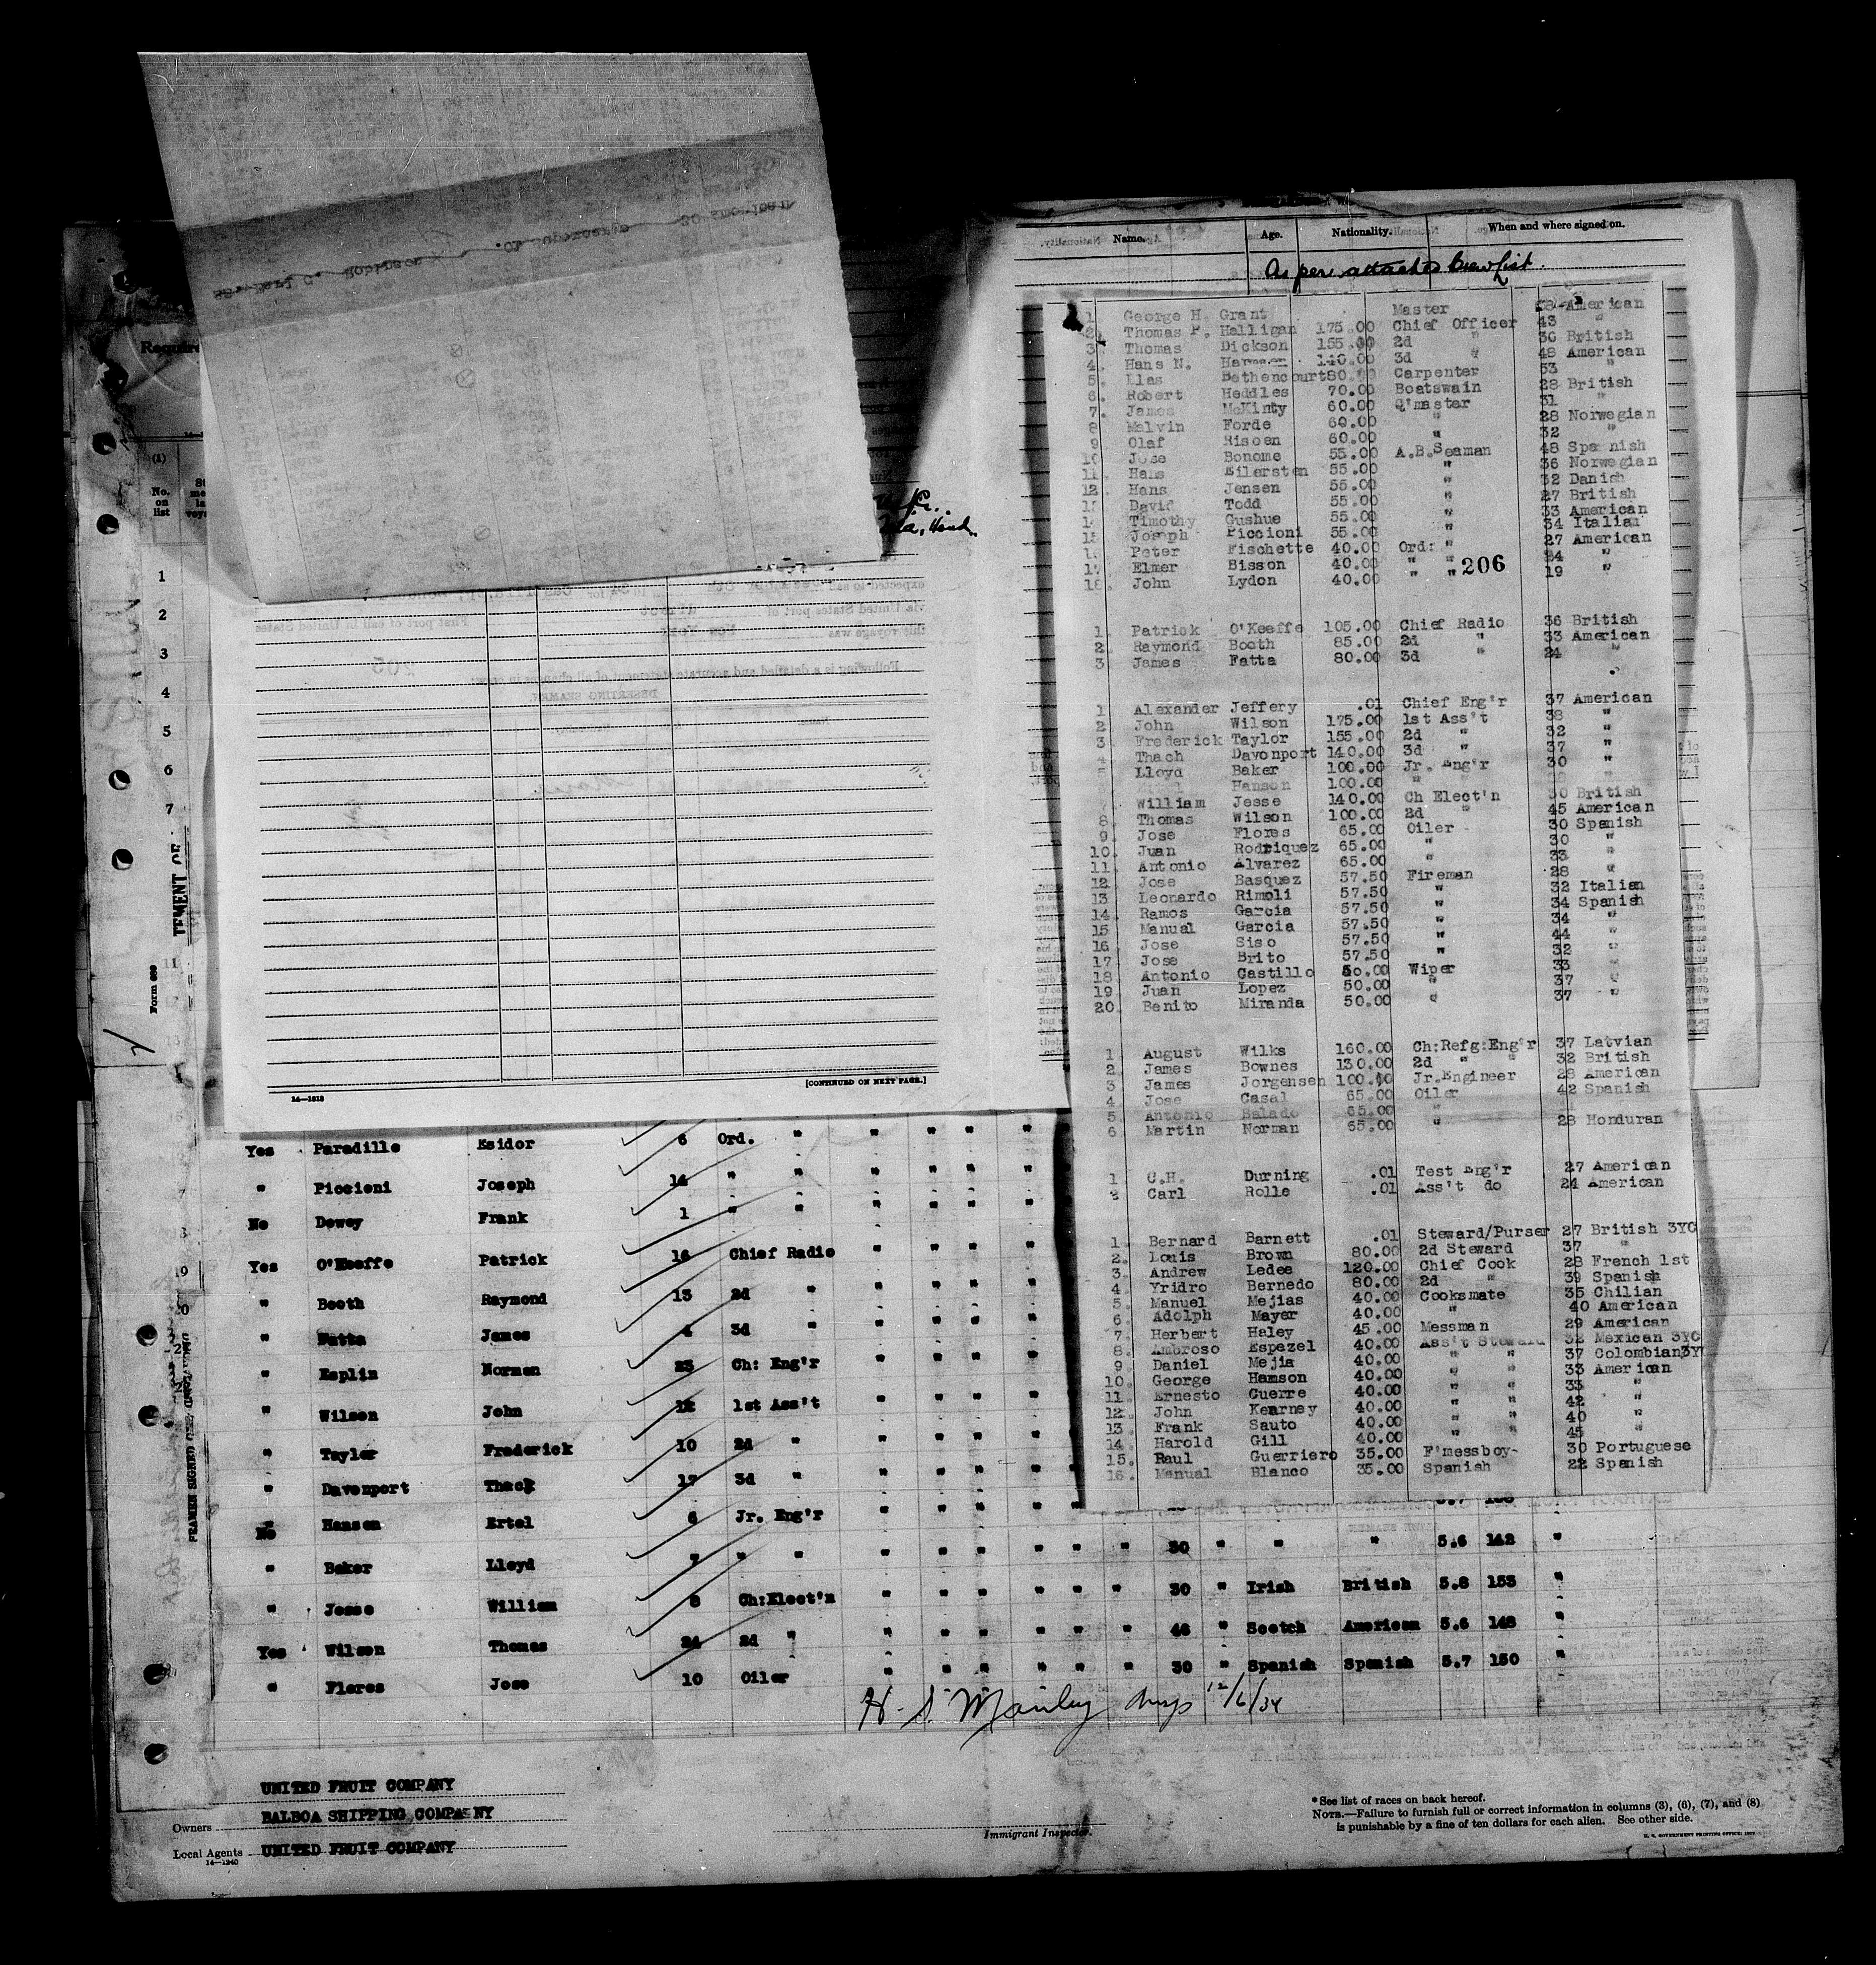 Name. Age. Nationality. When and where signed on.
As per attached Crew List.
1 George H. Grant Master 38 American
2. Thomas P. Halligan 175.00 Chief Officer 43 "
3. Thomas Dickson 155.00 2d " 30 British
4. Hans N. 140.00 3d " 48 American
5. Lias Bethencourt 80.00 Carpenter 53 "
6. Robert Heddles 70.00 Boatswain 28 British
7. James McKinty 60.00 Q'master 31 "
8 Melvin Forde 60.00 " 28 Norwegian
9 Olaf Risoen 60.00 " 32 "
10 Jose Bonome 55.00 A.B.Seaman 48 Spanish
11 Hans Eilersten 55.00 " 36 Norwegian
12. Hans Jensen 55.00 " 32 Danish
David Todd 55.00 " 27 British
Timothy Gushue 55.00 " 33 American
Joseph Piccioni 55.00 " 34 Italian
Peter Fischette 40.00 Ord: " 27 American
17 Elmer Bisson 40.00 " " 34 "
18. John Lydon 40.00 " " 19 "
206
1. Patrick O'Keeffe 105.00 Chief Radio 36 British
2. Raymond Booth 85.00 2d " 33 American
3 James Fatta 80.00 3d " 24 "
1 Alexander Jeffery .01 Chief Eng'r 37 American
2 John Wilson 175.00 1st Ass't 38 "
3 Frederick Taylor 155.00 2d " 32 "
4 Thach Davenport 140.00 3d " 37 "
5 Lloyd Baker 100.00 Jr. Eng'r 30 "
Hanson 100.00 "
7 William Jesse 140.00 Ch Elect'n 30 British
8. Thomas Wilson 100.00 2d " 45 American
9. Jose Flores 65.00 Oiler 30 Spanish
10. Juan Rodriquez 65.00 " 30 "
11. Antonio Alvarez 65.00 " 33 "
12 Jose Basquez 57.50 Fireman 28 "
13 Leonardo Rimoli 57.50 " 32 Italian
14. Ramos Garcia 57.50 " 34 Spanish
15 Manual Garcia 57.50 " 34 "
16. Jose Siso 57.50 " 44 "
17 Jose Brito 57.50 " 32 "
18 Antonio Castillo 50.00 Wiper 33 "
19 Juan Lopez 50.00 " 37 "
20. Benito Miranda 50.00 " 37 "
1. August Wilks 160.00 Ch:Refg:Eng'r 37 Latvian
2. James Bownes 130.00 2d " " 32 British
3 James Jorgensen 100.00 Jr.Engineer 28 American
4 Jose Casal 65.00 Oiler 42 Spanish
5 Antonio Balado 65.00 "
6 Martin Norman 65.00 28 Honduran
1 C.H. Durning .01 Test Eng'r 27 American
2 Carl Rolle .01 Ass't do 24 American
1. Bernard Barnett .01 Steward/Purser 27 British 3YO
2. Louis Brown 80.00 2d Steward 37 "
3. Andrew Ledee 120.00 Chief Cook 28 French 1st
4 Yridro Bernedo 80.00 2d " 39 Spanish
5. Manuel Mejias 40.00 Cooksmate 35 Chilian
6. Adolph Mayer 40.00 " 40 American
7. Herbert Haley 45.00 Messman 29 American
8. Ambroso Espezel 40.00 Ass't Steward 32 Mexican 3YO
9. Daniel Mejia 40.00 " " 37 Colombian3Y
10. George Hamson 40.00 " " 33 American
11. Ernesto Guerre 40.00 " " 33 "
12. John Kearney 40.00 " " 42 "
13. Frank Sauto 40.00 " " 40 "
14. Harold Gill 40.00 " " 45 "
15. Raul Guerriero 35.00 F'messboy- 30 Portuguese
16. Manual Blanco 35.00 Spanish 22 Spanish
(1)
No. on list
1
2
3
4
5
6
7
11
Form 689
[CONTINUED ON NEXT PAGE.]
14—1618
Yes Paradille Esidor 6 Ord. " " " " "
" Piccioni Joseph 14 " " " " " "
No Dewey Frank 1 " " " " " "
Yes O'Keeffe Patrick 16 Chief Radio " " " "
" Booth Raymond 13 2d " " " " "
" Fatta James 4 3d " " " " "
" Esplin Norman 23 Ch: Eng'r " " " "
" Wilson John 12 1st Ass't " " " "
" Taylor Frederick 10 2d " " " " "
" Davenport Thack 17 3d " " " " "
" Hansen Ertel 6 Jr. Eng'r " " " "
No
" Baker Lloyd 7 " " " " " " " " 30 " " " 5.6 142 "
" Jesse William 8 Ch:Elect'n " " " " " " 30 " Irish British 5.8 153 "
Yes Wilson Thomas 24 2d " " " " " " " 46 " Scotch American 5.6 148 "
" Flores Jose 10 Oiler " " " " " " 30 " Spanish Spanish 5.7 150 "
H. S. Manley 12/6/34
UNITED FRUIT COMPANY
Owners BALBOA SHIPPING COMPANY
Local Agents UNITED FRUIT COMPANY
14—1240
Immigrant Inspector.
*See list of races on back hereof.
NOTE.—Failure to furnish full or correct information in columns (3), (6), (7), and (8)
is punishable by a fine of ten dollars for each alien. See other side.
U. S. GOVERNMENT PRINTING OFFICE